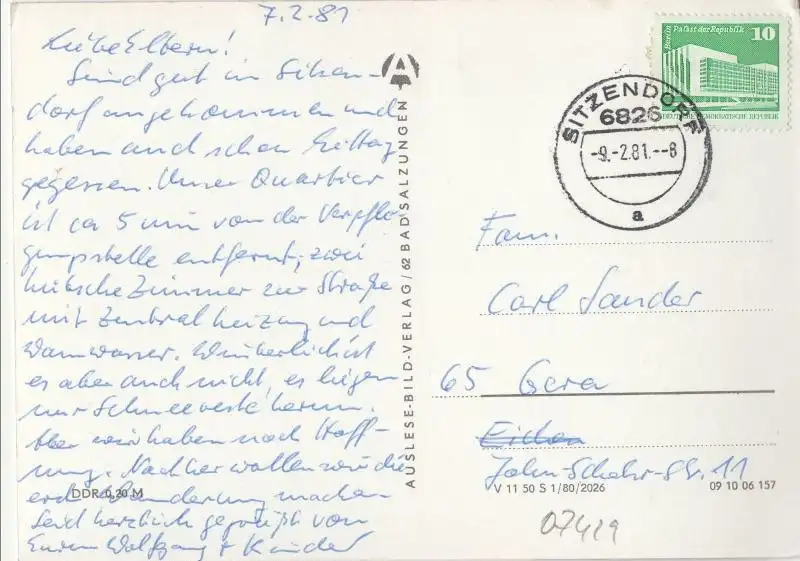 7.2.81
Liebe Eltern!
Sind gut in Sitzen-
dorf angekommen und
haben auch schon Mittag
gegessen. Unser Quartier
ist ca 5 min von der Verpfle-
gungsstelle entfernt, zwei
hübsche Zimmer zur Straße
mit Zentralheizung und
Warmwasser. Winterlich ist
es aber auch nicht, es liegen
nur Schneereste herum.
Aber wir haben noch Hoff-
nung. Nachher wollen wir die
erste Wanderung machen.
Seid herzlich gegrüßt von
Euren Wolfgang + Kinder
DDR 0,20 M
AUSLESE-BILD-VERLAG / 62 BAD SALZUNGEN
Berlin Palast der Republik 10
DEUTSCHE DEMOKRATISCHE REPUBLIK
SITZENDORF
6826
-9.-2.81.--8
a
Fam.
Carl Sander
65 Gera
John-Schehr-Str. 11
V 11 50 S 1/80/2026 09 10 06 157
07419